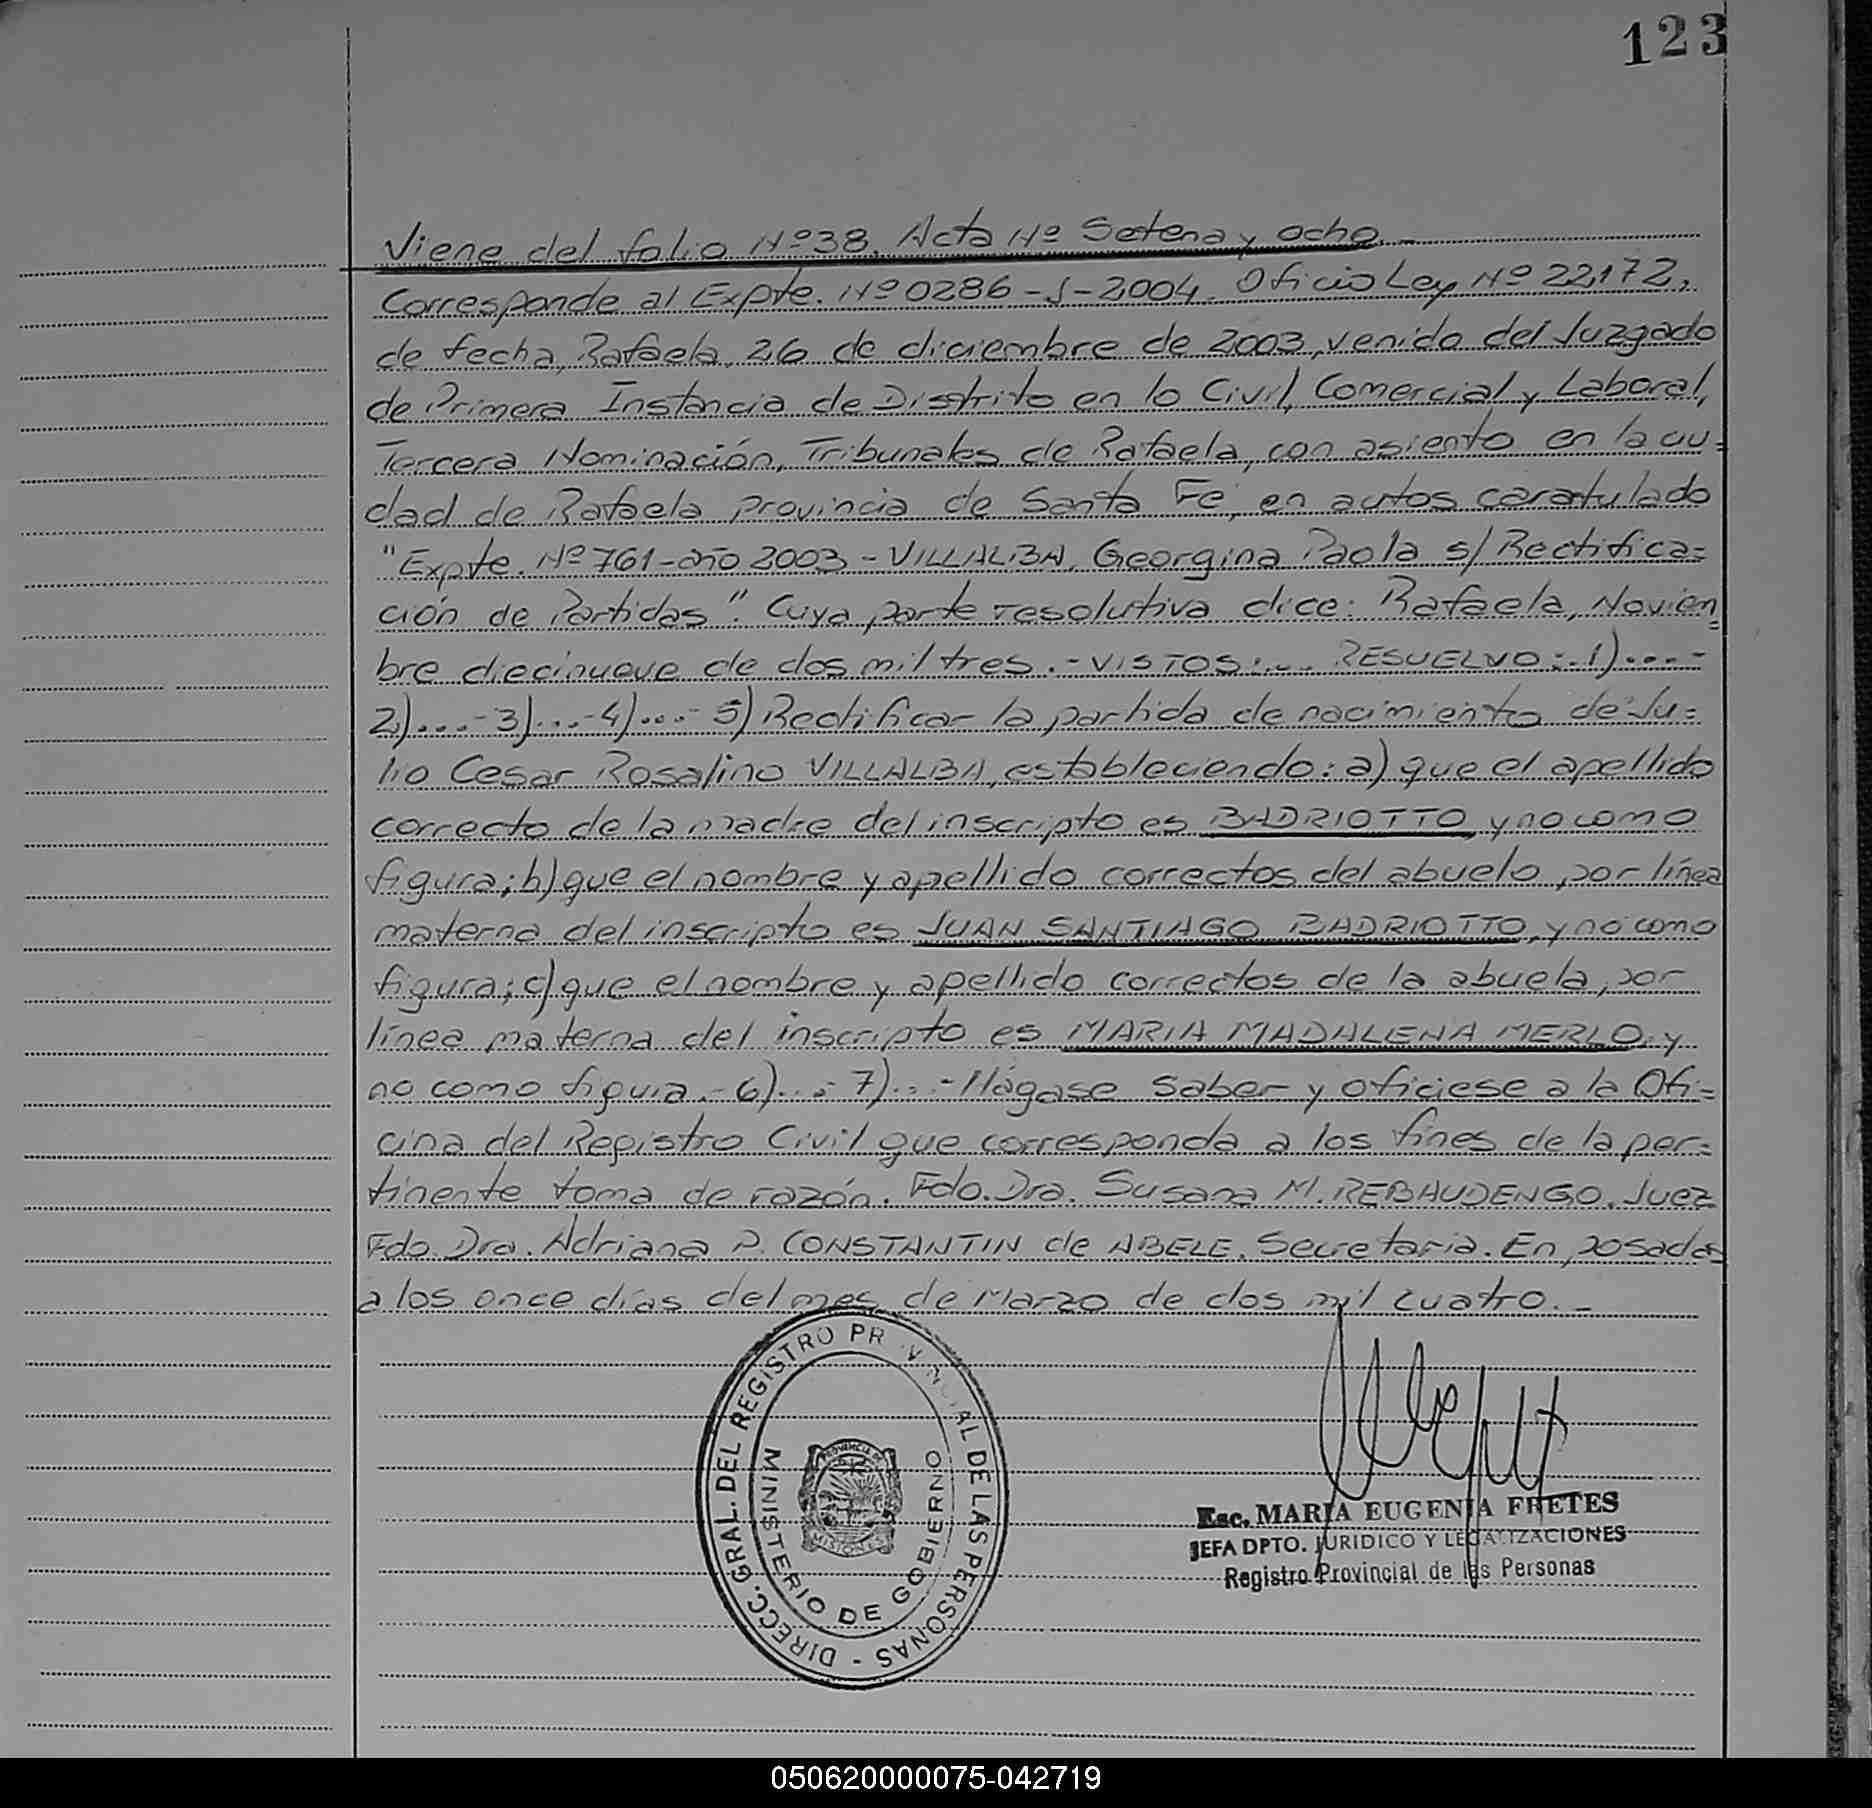 123
Viene del folio Nº 38. Acta Nº Setena y ocho.-
Corresponde al Expte. Nº 0286-J-2004. Oficio Ley Nº 22172,
de fecha, Rafaela, 26 de diciembre de 2003, venido del Juzgado
de Primera Instancia de Distrito en lo Civil, Comercial y Laboral,
Tercera Nominación, Tribunales de Rafaela, con asiento en la ciu=
dad de Rafaela provincia de Santa Fe, en autos caratulado
"Expte. Nº 761-año 2003-VILLALBA, Georgina Paola s/ Rectifica=
ción de Partidas". Cuya parte resolutiva dice: Rafaela, Novien=
bre diecinueve de dos mil tres.-VISTOS:... RESUELVO:.1)....-
2)....-3)...-4)....-5) Rectificar la partida de nacimiento de Ju=
lio Cesar Rosalino VILLALBA, estableciendo: a) que el apellido
correcto de la madre del inscripto es BADRIOTTO, y no como
figura; b) que el nombre y apellido correctos del abuelo por línea
materna del inscripto es JUAN SANTIAGO BADRIOTTO, y no como
figura; c) que el nombre y apellido correctos de la abuela por
línea materna del inscripto es MARIA MADALENA MERLO, y
no como figura.-6)...- 7)...-Hágase saber y ofíciese a la Ofi=
cina del Registro Civil que corresponda a los fines de la per=
tinente toma de razón. Fdo. Dra. Susana M. REBAUDENGO. Juez
Fdo. Dra. Adriana P. CONSTANTIN de ABELE. Secretaria. En posadas
a los once días del mes de Marzo de dos mil cuatro.-
DIRECC. GRAL. DEL REGISTRO PROVINCIAL DE LAS PERSONAS -
MINISTERIO DE GOBIERNO
PROVINCIA DE
MISIONES
Esc. MARIA EUGENIA FRETES
JEFA DPTO. JURIDICO Y LEGALIZACIONES
Registro Provincial de las Personas
050620000075-042719